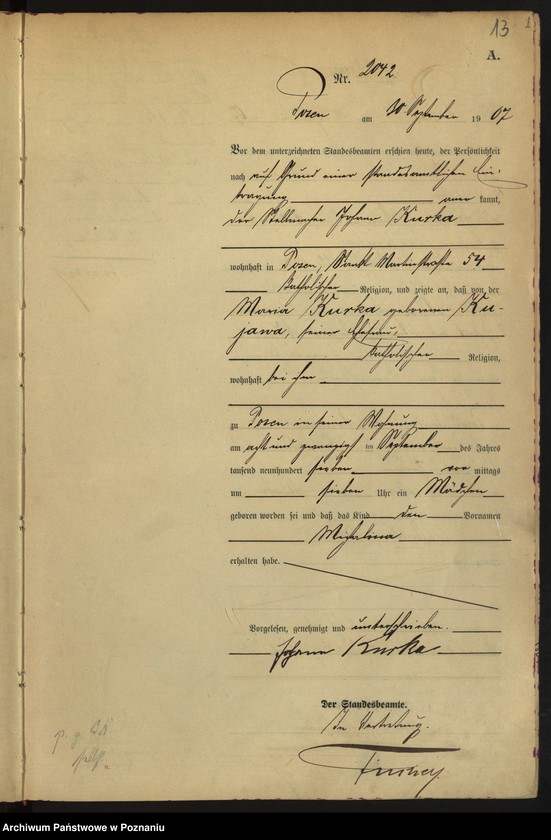 13 1
A.
Nr. 2042
Posen am 30 September 19 07
Vor dem unterzeichneten Standesbeamten erschien heute, der Persönlichkeit
nach auf Grund einer standesamtlichen Ein-
tragung anerkannt,
der Stellmacher Johann Kurka
wohnhaft in Posen, Sankt Martinstraße 54
katholischer Religion, und zeigte an, daß von der
Maria Kurka geborenen Ku-
jawa, seiner Ehefrau,
katholischer Religion,
wohnhaft bei ihm
zu Posen in seiner Wohnung
am acht und zwanzigst en September des Jahres
tausend neunhundert sieben vor mittags
um sieben Uhr ein Mädchen
geboren worden sei und daß das Kind den Vornamen
Michalina
erhalten habe.
Vorgelesen, genehmigt und unterschrieben.
Johann Kurka
Der Standesbeamte.
In Vertretung.
Archiwum Państwowe w Poznaniu